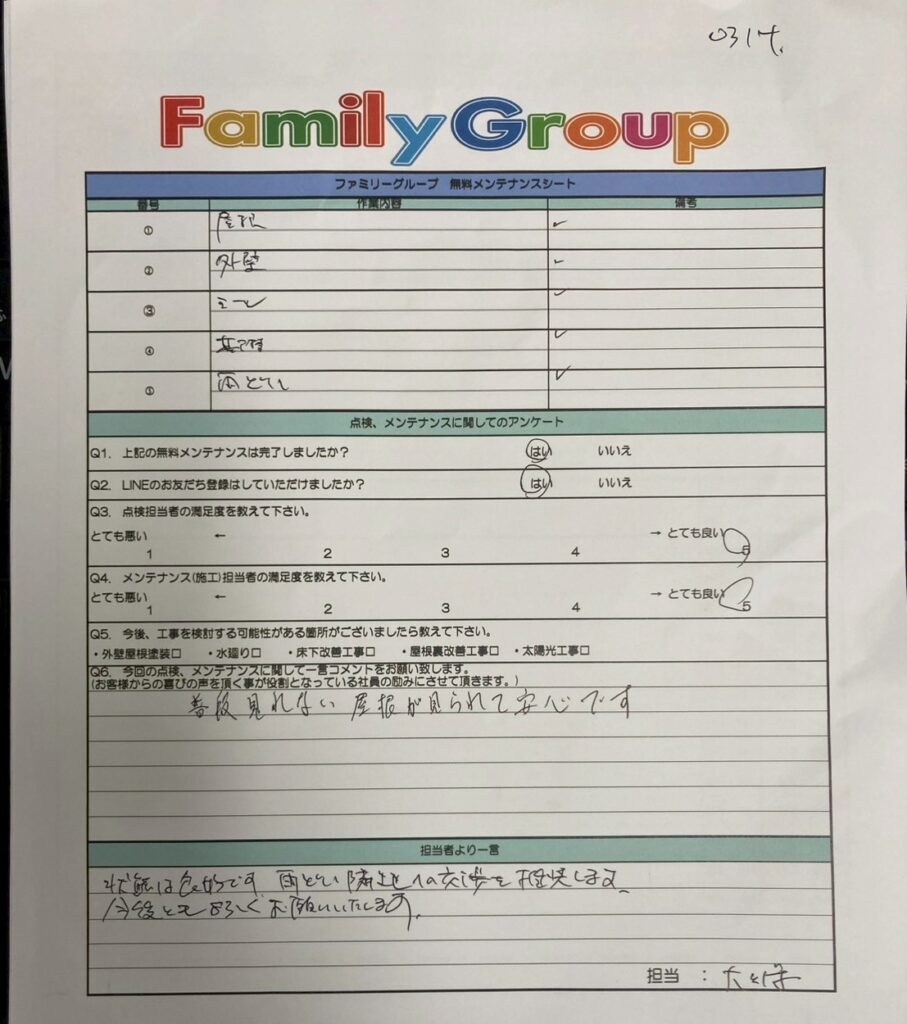 Family Group
ファミリーグループ 無料メンテナンスシート
番号 作業内容 備考
① 屋根 ✓
② 外壁 ✓
③ シール ✓
④ 基礎 ✓
① 雨とい ✓
点検、メンテナンスに関してのアンケート
Q1. 上記の無料メンテナンスは完了しましたか? はい いいえ
Q2. LINEのお友だち登録はしていただけましたか? はい いいえ
Q3. 点検担当者の満足度を教えて下さい。
とても悪い ← → とても良い
1 2 3 4 5
Q4. メンテナンス(施工)担当者の満足度を教えて下さい。
とても悪い ← → とても良い
1 2 3 4 5
Q5. 今後、工事を検討する可能性がある箇所がございましたら教えて下さい。
・外壁屋根塗装□ ・水廻り□ ・床下改善工事□ ・屋根裏改善工事□ ・太陽光工事□
Q6. 今回の点検、メンテナンスに関して一言コメントをお願い致します。
(お客様からの喜びの声を頂く事が役割となっている社員の励みにさせて頂きます。)
普段見れない屋根が見られて安心です
担当者より一言
状態は良好です。雨とい隣地への交渉を推奨します。
今後とも宜しくお願いいたします。
担当 :